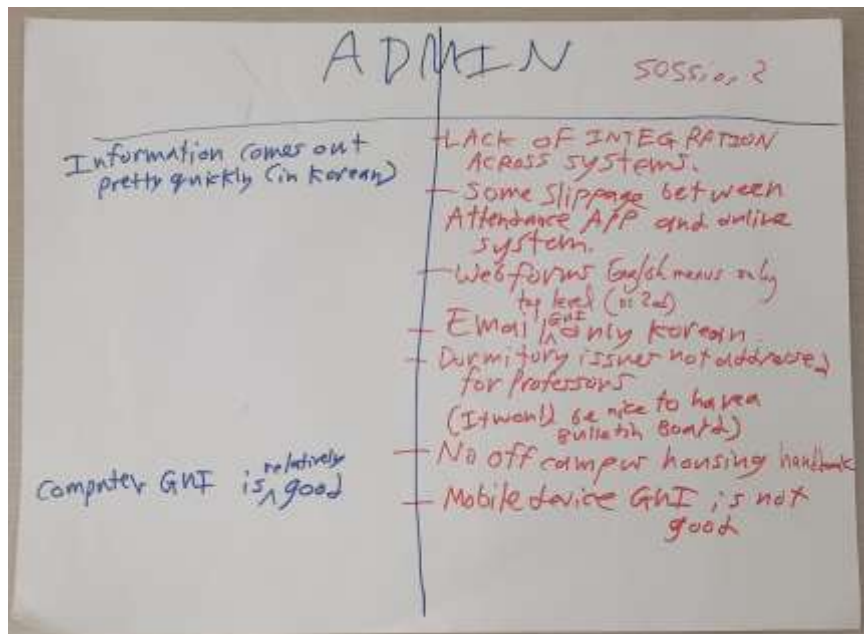 ADMIN
SOSSion 2
Information comes out
pretty quickly (in korean)
Computer GUI is relatively good
- LACK OF INTEGRATION
ACROSS systems.
- Some slippage between
Attendance APP and online
system.
- Web forms English menus only
top level (no 2nd)
- Email GUI only korean
- Dormitory issues not addressed
for professors
(It would be nice to have a
Bulletin Board)
- No off campus housing handbook
- Mobile device GUI is not
good